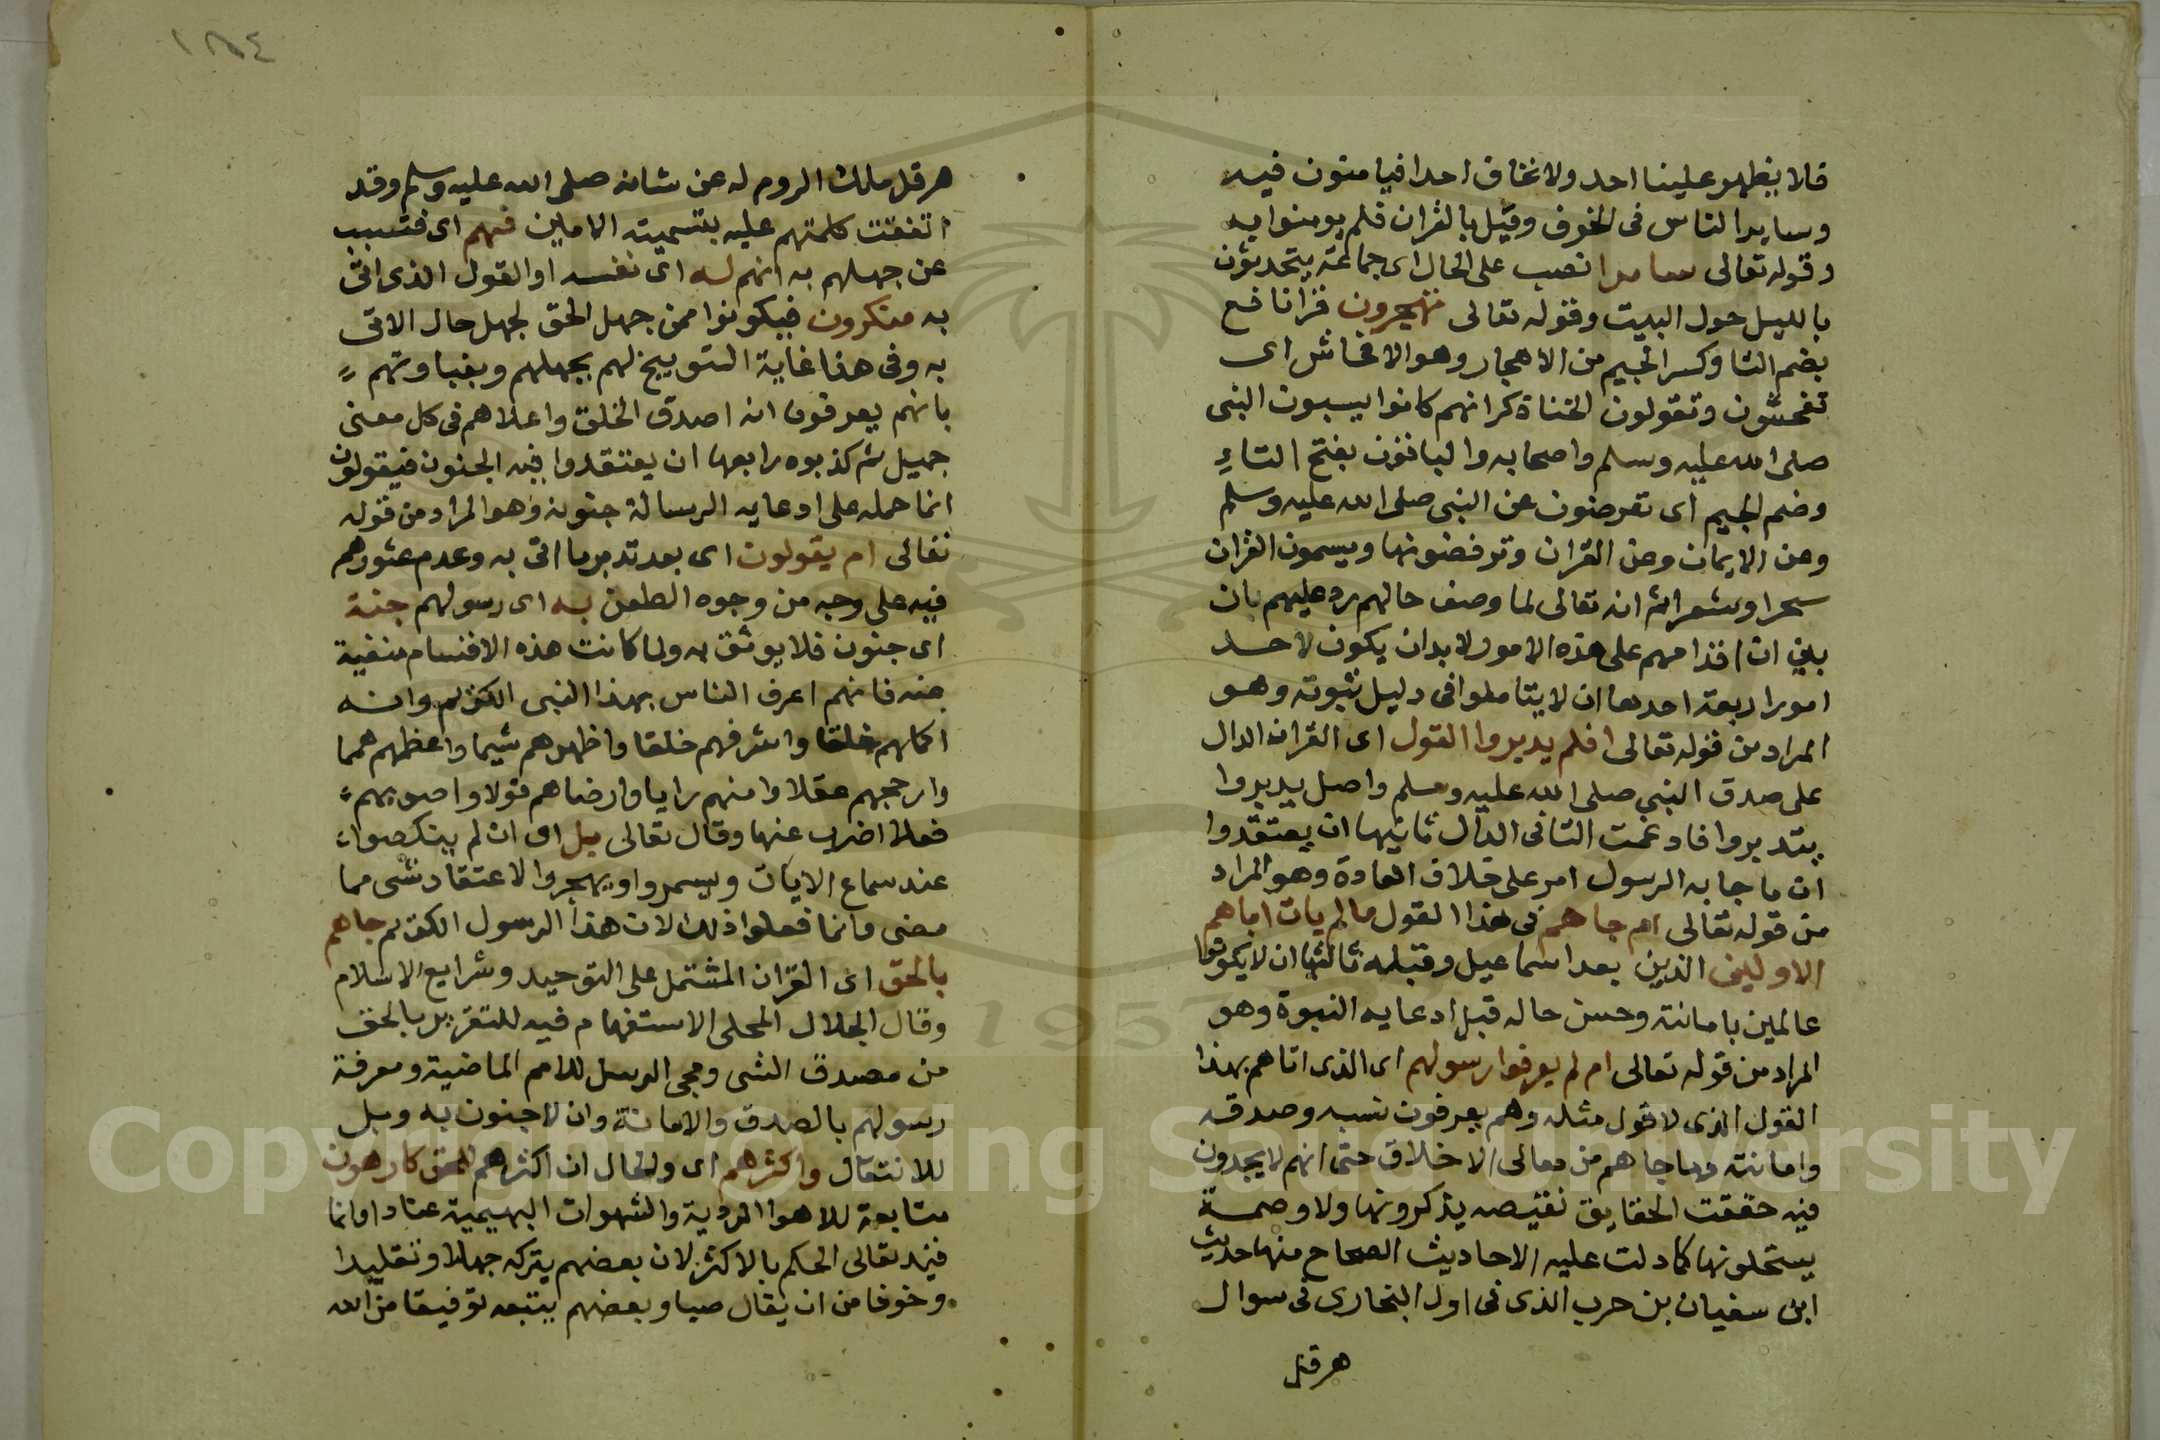 فلا يظهر علينا احد ولا نخاف احدا فيامنون فيه
وساير الناس فى الخوف وقيل بالقران فلم يومنوا به
وقوله تعالى سامرا نصب على الحال اى جماعة يتحدثون
بالليل حول البيت وقوله تعالى تهجرون قرا نافع
بضم التا وكسر الجيم من الاهجار وهو الافحاش اى
تفحشون وتقولون الخنا ذكر انهم كانوا يسبون النبى
صلى الله عليه وسلم واصحابه والباقون بفتح التاء
وضم الجيم اى تعرضون عن النبى صلى الله عليه وسلم
وعن الايمان وعن القران وترفضونها ويسمون القران
سحرا وشعرا ثم انه تعالى لما وصف حالهم رد عليهم بان
بين ان اقدامهم على هذه الامور لا بد ان يكون لاحد
امور اربعة احدها ان لا يتاملوا فى دليل ثبوته وهو
المراد من قوله تعالى افلم يدبروا القول اى القران الدال
على صدق النبى صلى الله عليه وسلم واصل يدبروا
يتدبروا فادغمت التا فى الدال ثانيها ان يعتقدوا
ان ما جا به الرسول امر على خلاف العادة وهو المراد
من قوله تعالى ام جاهم فى هذا القول ما لم يات اباهم
الاولين الذين بعد اسماعيل وقبله ثالثها ان لا يكونوا
عالمين بامانته وحسن حاله قبل ادعايه النبوة وهو
المراد من قوله تعالى ام لم يعرفوا رسولهم اى الذى اتاهم بهذا
القول الذى لا قول مثله وهم يعرفون نسبه وصدقه
وامانته وما جاهم من معالى الاخلاق حتى انهم لا يجدون
فيه حققت الحقايق نقيصه يذكرونها ولا وصمة
يستحلونها كما دلت عليه الاحاديث الصحاح منها حديث
ابى سفيان بن حرب الذى فى اول البخارى فى سوال
هرقل
١٨٤
هرقل ملك الروم له عن شانه صلى الله عليه وسلم وقد
اتفقت كلمتهم عليه بتسميته الامين فهم اى فتسبب
عن جهلهم به انهم له اى نفسه او القول الذى اتى
به منكرون فيكونوا ممن جهل الحق لجهل حال الاتى
به وفى هذا غاية التوبيخ لهم بجهلهم وبغباوتهم
بانهم يعرفون انه اصدق الخلق واعلاهم فى كل معنى
جميل ثم كذبوه رابعها ان يعتقدوا فيه الجنون فيقولون
انما حمله على ادعايه الرسالة جنونه وهو المراد من قوله
تعالى ام يقولون اى بعد تدبر ما اتى به وعدم عثورهم
فيه على وجه من وجوه الطعن به اى رسولهم جنة
اى جنون فلا يوثق به ولما كانت هذه الاقسام منفية
عنه فانهم اعرف الناس بهذا النبى الكريم وانه
اكملهم خلقا واشرفهم خلقا واظهرهم شيما واعظمهم همما
وارجحهم عقلا وامنهم رايا وارضاهم قولا واصوبهم
فعلا اضرب عنها وقال تعالى بل اى ان لم ينكصوا
عند سماع الايات ويسمروا ويهجروا لاعتقاد شى مما
مضى وانما فعلوا ذلك لان هذا الرسول الكريم جاهم
بالحق اى القران المشتمل على التوحيد وشرايع الاسلام
وقال الجلال المحلى الاستفهام فيه للتقرير بالحق
من صدق النبى ومجى الرسل للامم الماضية ومعرفة
رسولهم بالصدق والامانة وان لا جنون به وبل
للانتقال واكثرهم اى والحال ان اكثرهم للحق كارهون
متابعة للاهوا الردية والشهوات البهيمية عنادا وانما
قيد تعالى الحكم بالاكثر لان بعضهم يتركه جهلا وتقليدا
وخوفا من ان يقال صبا وبعضهم يتبعه توفيقا من الله
1957
Copyright © King Saud University